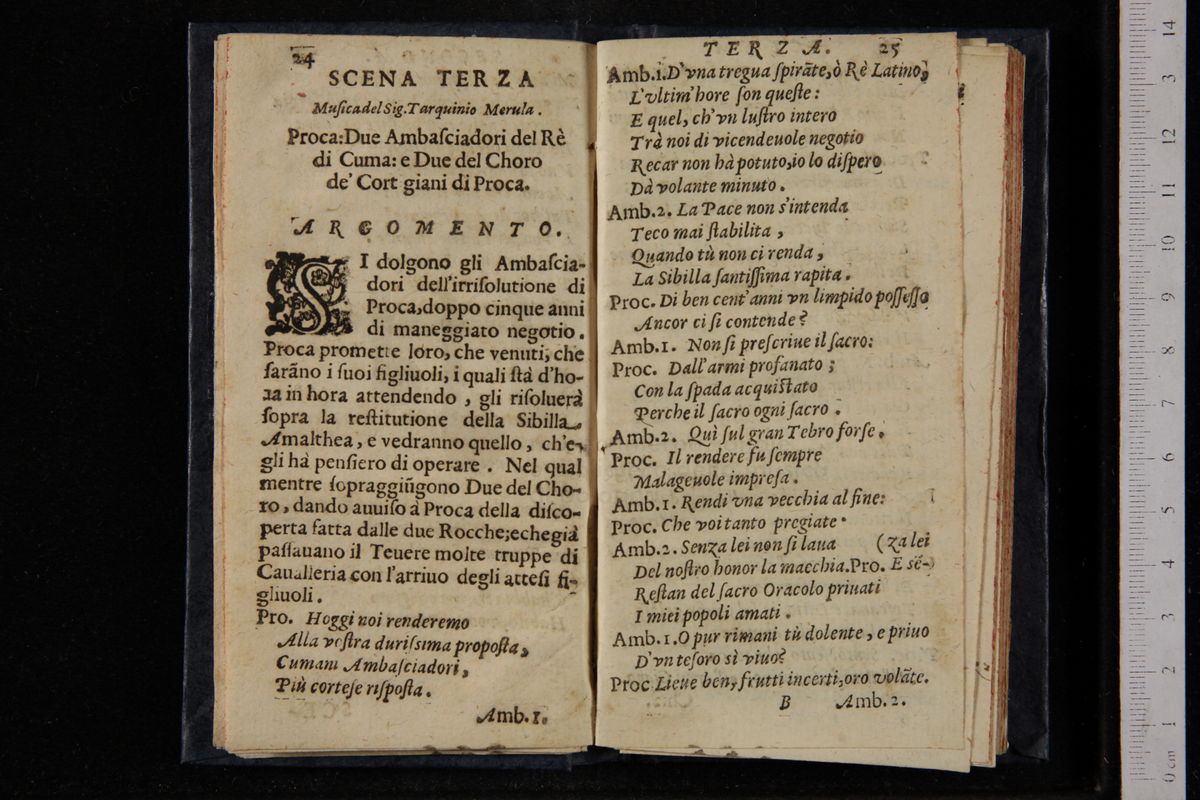 24
SCENA TERZA
Musica del Sig. Tarquinio Merula.
Proca: Due Ambaſciadori del Rè
di Cuma: e Due del Choro
de' Cort giani di Proca.
ARGOMENTO.
SI dolgono gli Ambaſcia-
dori dell'irriſolutione di
Proca, doppo cinque anni
di maneggiato negotio.
Proca promette loro, che venuti, che
ſarãno i ſuoi figliuoli, i quali ſtà d'ho-
ra in hora attendendo, gli riſoluerà
ſopra la reſtitutione della Sibilla
Amalthea, e vedranno quello, ch'e-
gli hà penſiero di operare. Nel qual
mentre ſopraggiũgono Due del Cho-
ro, dando auuiſo à Proca della diſco-
perta fatta dalle due Rocche; echegià
paſſauano il Teuere molte truppe di
Caualleria con l'arriuo degli atteſi fi-
gliuoli.
Pro. Hoggi noi renderemo
Alla voſtra duriſsima propoſta,
Cumani Ambaſciadori,
Più corteſe riſpoſta.
Amb. 1.
TERZA. 25
Amb. 1. D'vna tregua ſpirãte, ò Rè Latino,
L'vltim'hore ſon queſte:
E quel, ch'vn luſtro intero
Trà noi di vicendeuole negotio
Recar non hà potuto, io lo diſpero
Dà volante minuto.
Amb. 2. La Pace non s'intenda
Teco mai ſtabilita,
Quando tù non ci renda,
La Sibilla ſantiſſima rapita.
Proc. Di ben cent'anni vn limpido poſſeſſo
Ancor ci ſi contende?
Amb. 1. Non ſi preſcriue il ſacro:
Proc. Dall'armi profanato;
Con la ſpada acquiſtato
Perche il ſacro ogni ſacro.
Amb. 2. Quì ſul gran Tebro forſe.
Proc. Il rendere fu ſempre
Malageuole impreſa.
Amb. 1. Rendi vna vecchia al fine:
Proc. Che voi tanto pregiate.
Amb. 2. Senza lei non ſi laua (za lei
Del noſtro honor la macchia. Pro. E sẽ-
Reſtan del ſacro Oracolo priuati
I miei popoli amati.
Amb. 1. O pur rimani tù dolente, e priuo
D'vn teſoro sì viuo?
Proc Lieue ben, frutti incerti, oro volãte.
B Amb. 2.